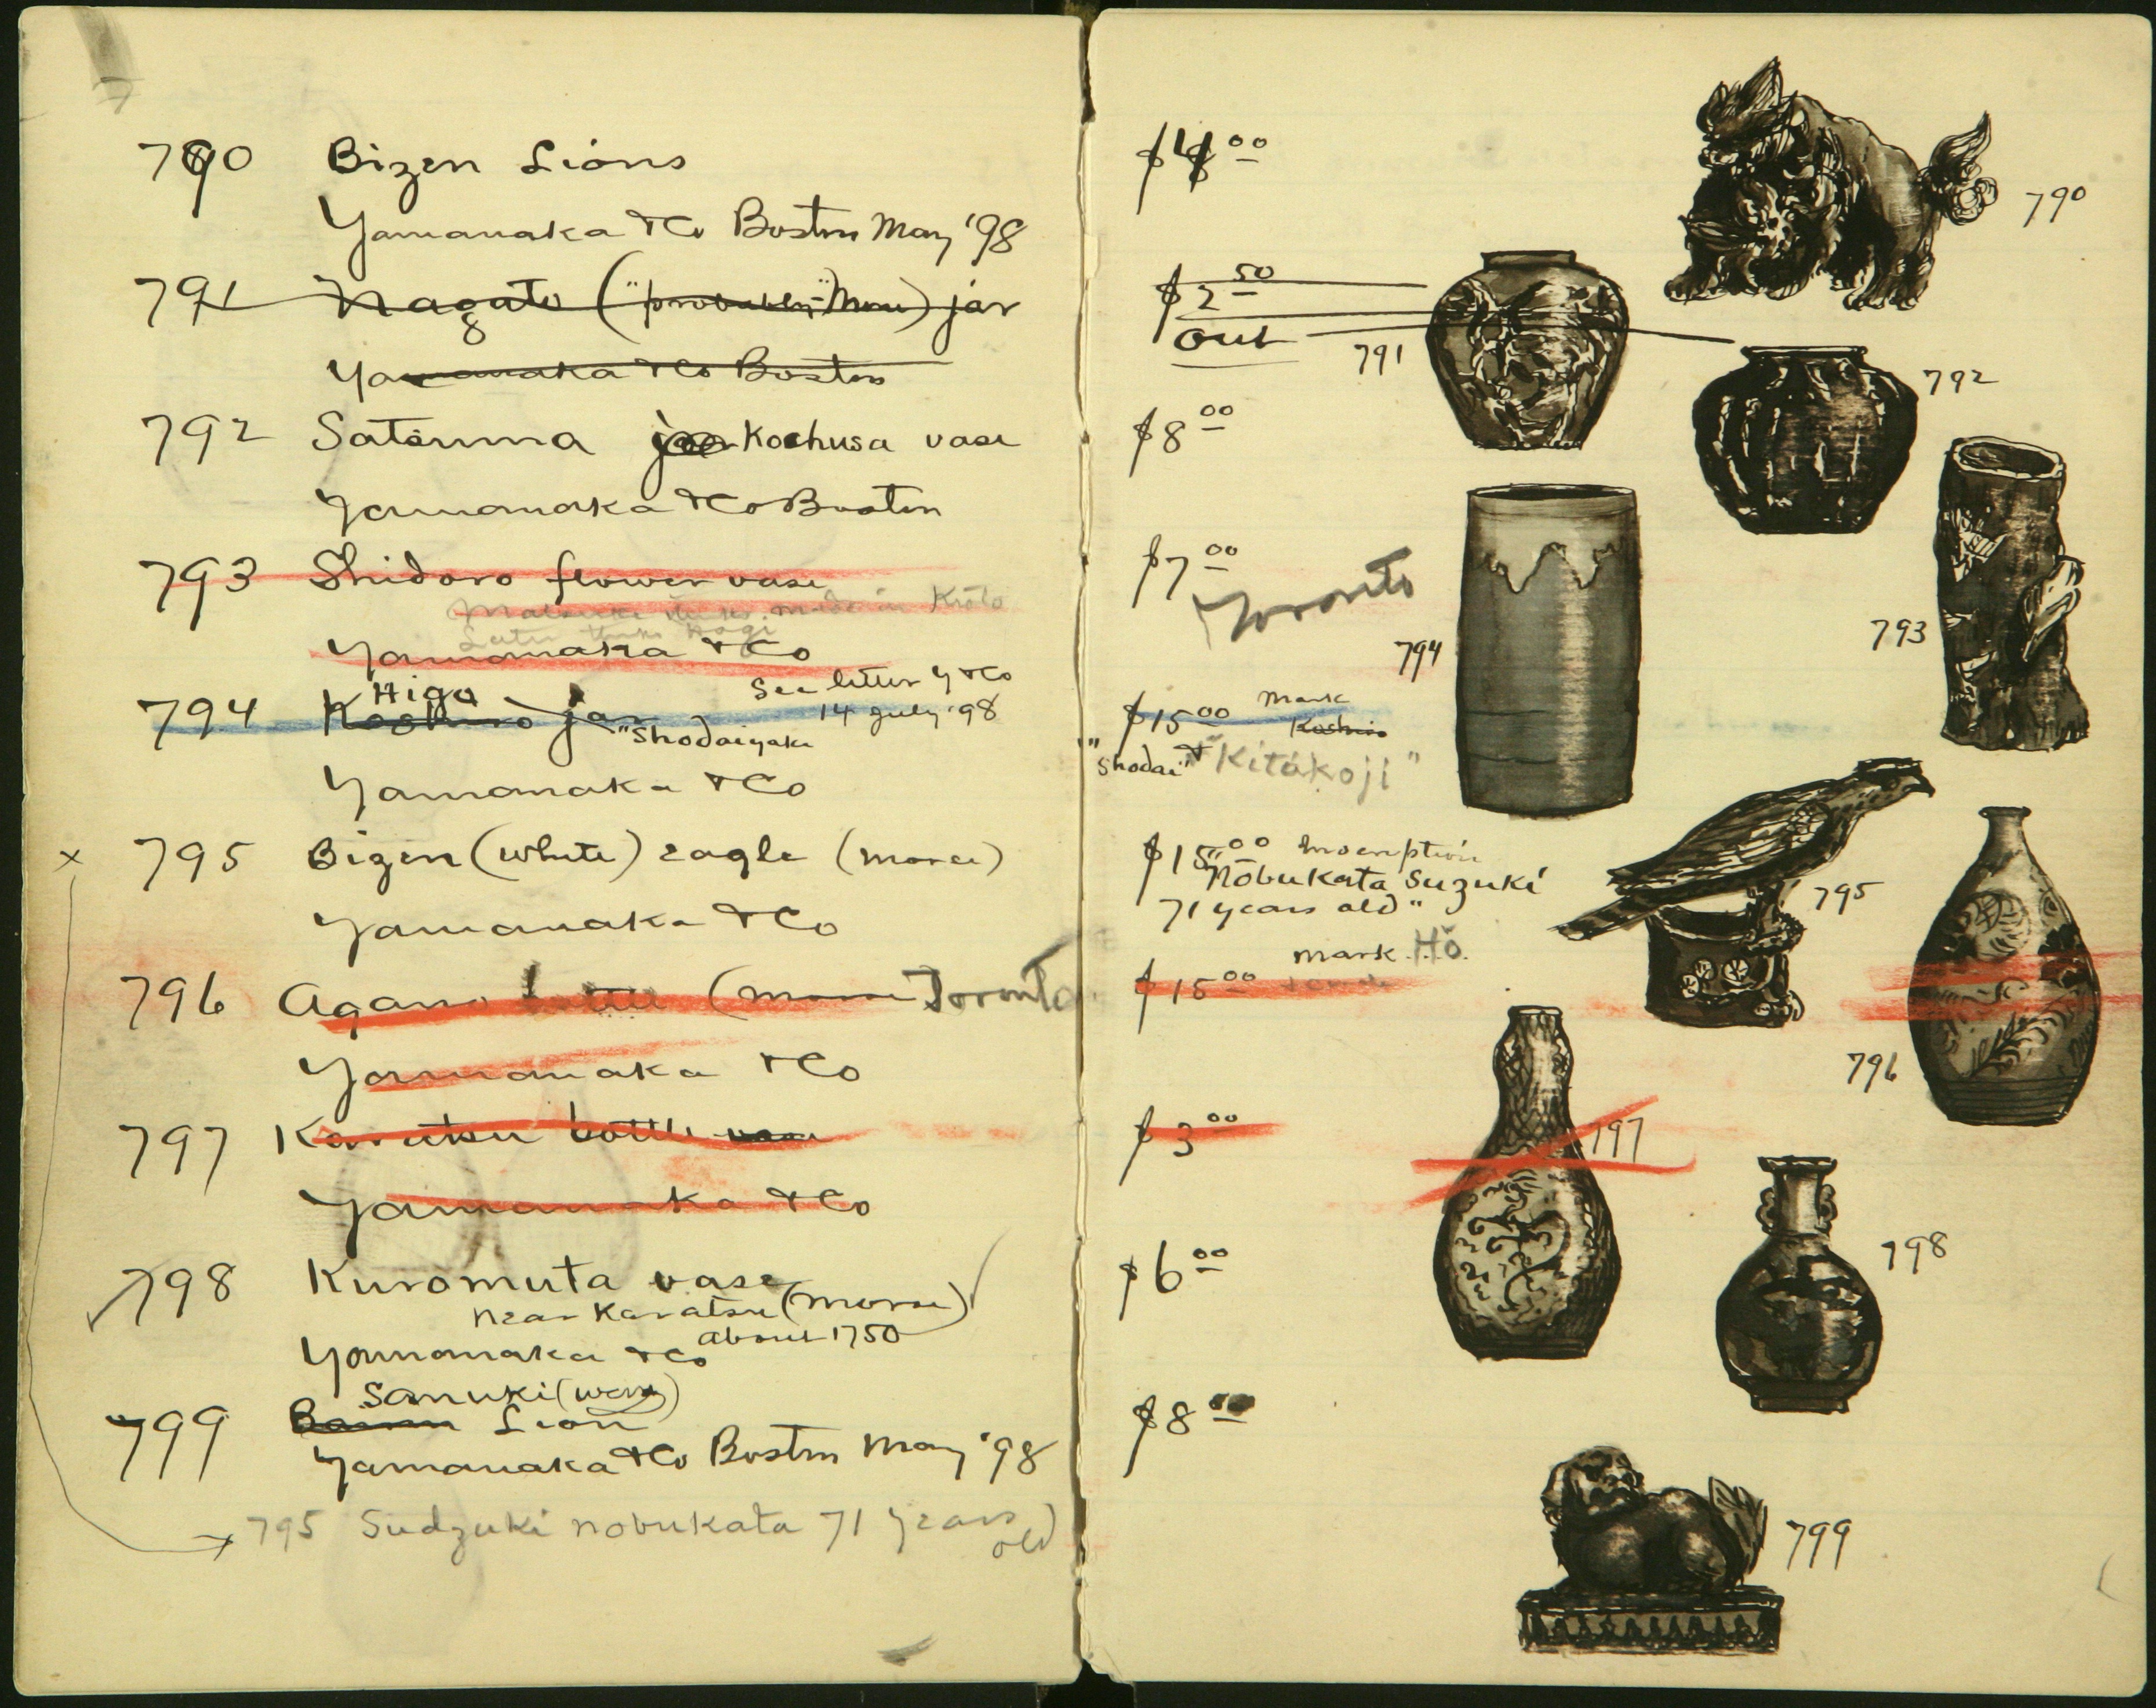 790 Bizen Lions
Yamanaka & Co Boston May '98
791 Nagato ("probably" Morse) jar
Yamanaka & Co Boston
792 Satsuma Kochusa vase
Yamanaka & Co Boston
793 Shidoro flower vase
made in Kioto
Yamanaka & Co
Higo
See letter Y & Co
794 Koshiro jar
14 July '98
"Shodaiyaki
Yamanaka & Co
x 795 Bizen (white) eagle (Morse)
Yamanaka & Co
796 Agano bottle (Morse Toronto
Yamanaka & Co
797 Karatsu bottle vase
Yamanaka & Co
798 Kuromuta vase
near Karatsu (Morse)
about 1750
Yamanaka & Co
Sanuki
799 Lion
Yamanaka & Co Boston May '98
795 Sudzuki Nobukata 71 years
old
00
790
$2 50
out
791
792
$8 00
$7 00
Toronto
793
794
$15 00 Mark
Koshiro
"Shodai" & "Kitakoji"
$15 00 Inscription
"Nobukata Suzuki
71 years old"
795
mark Hō
$15 00
796
$3 00
797
$6 00
798
$8 00
799